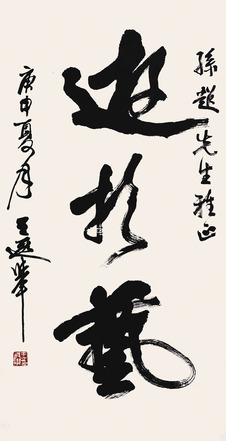 孫超先生雅正
遊於藝
庚申夏月
王遐舉